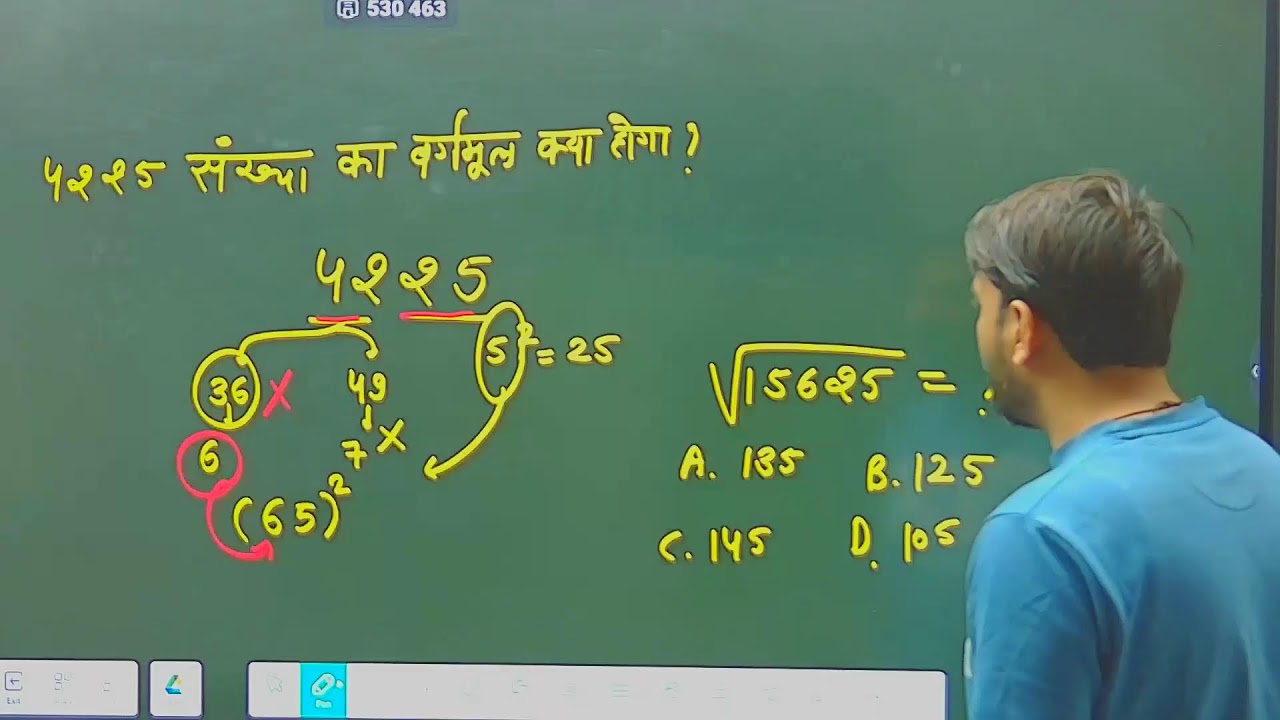 530 463
4225 संख्या का वर्गमूल क्या होगा?
4225
36 X 49 5² = 25
6 7 X
(65)²
√15625 = :
A. 135 B. 125
C. 145 D. 105
Exit
Pen